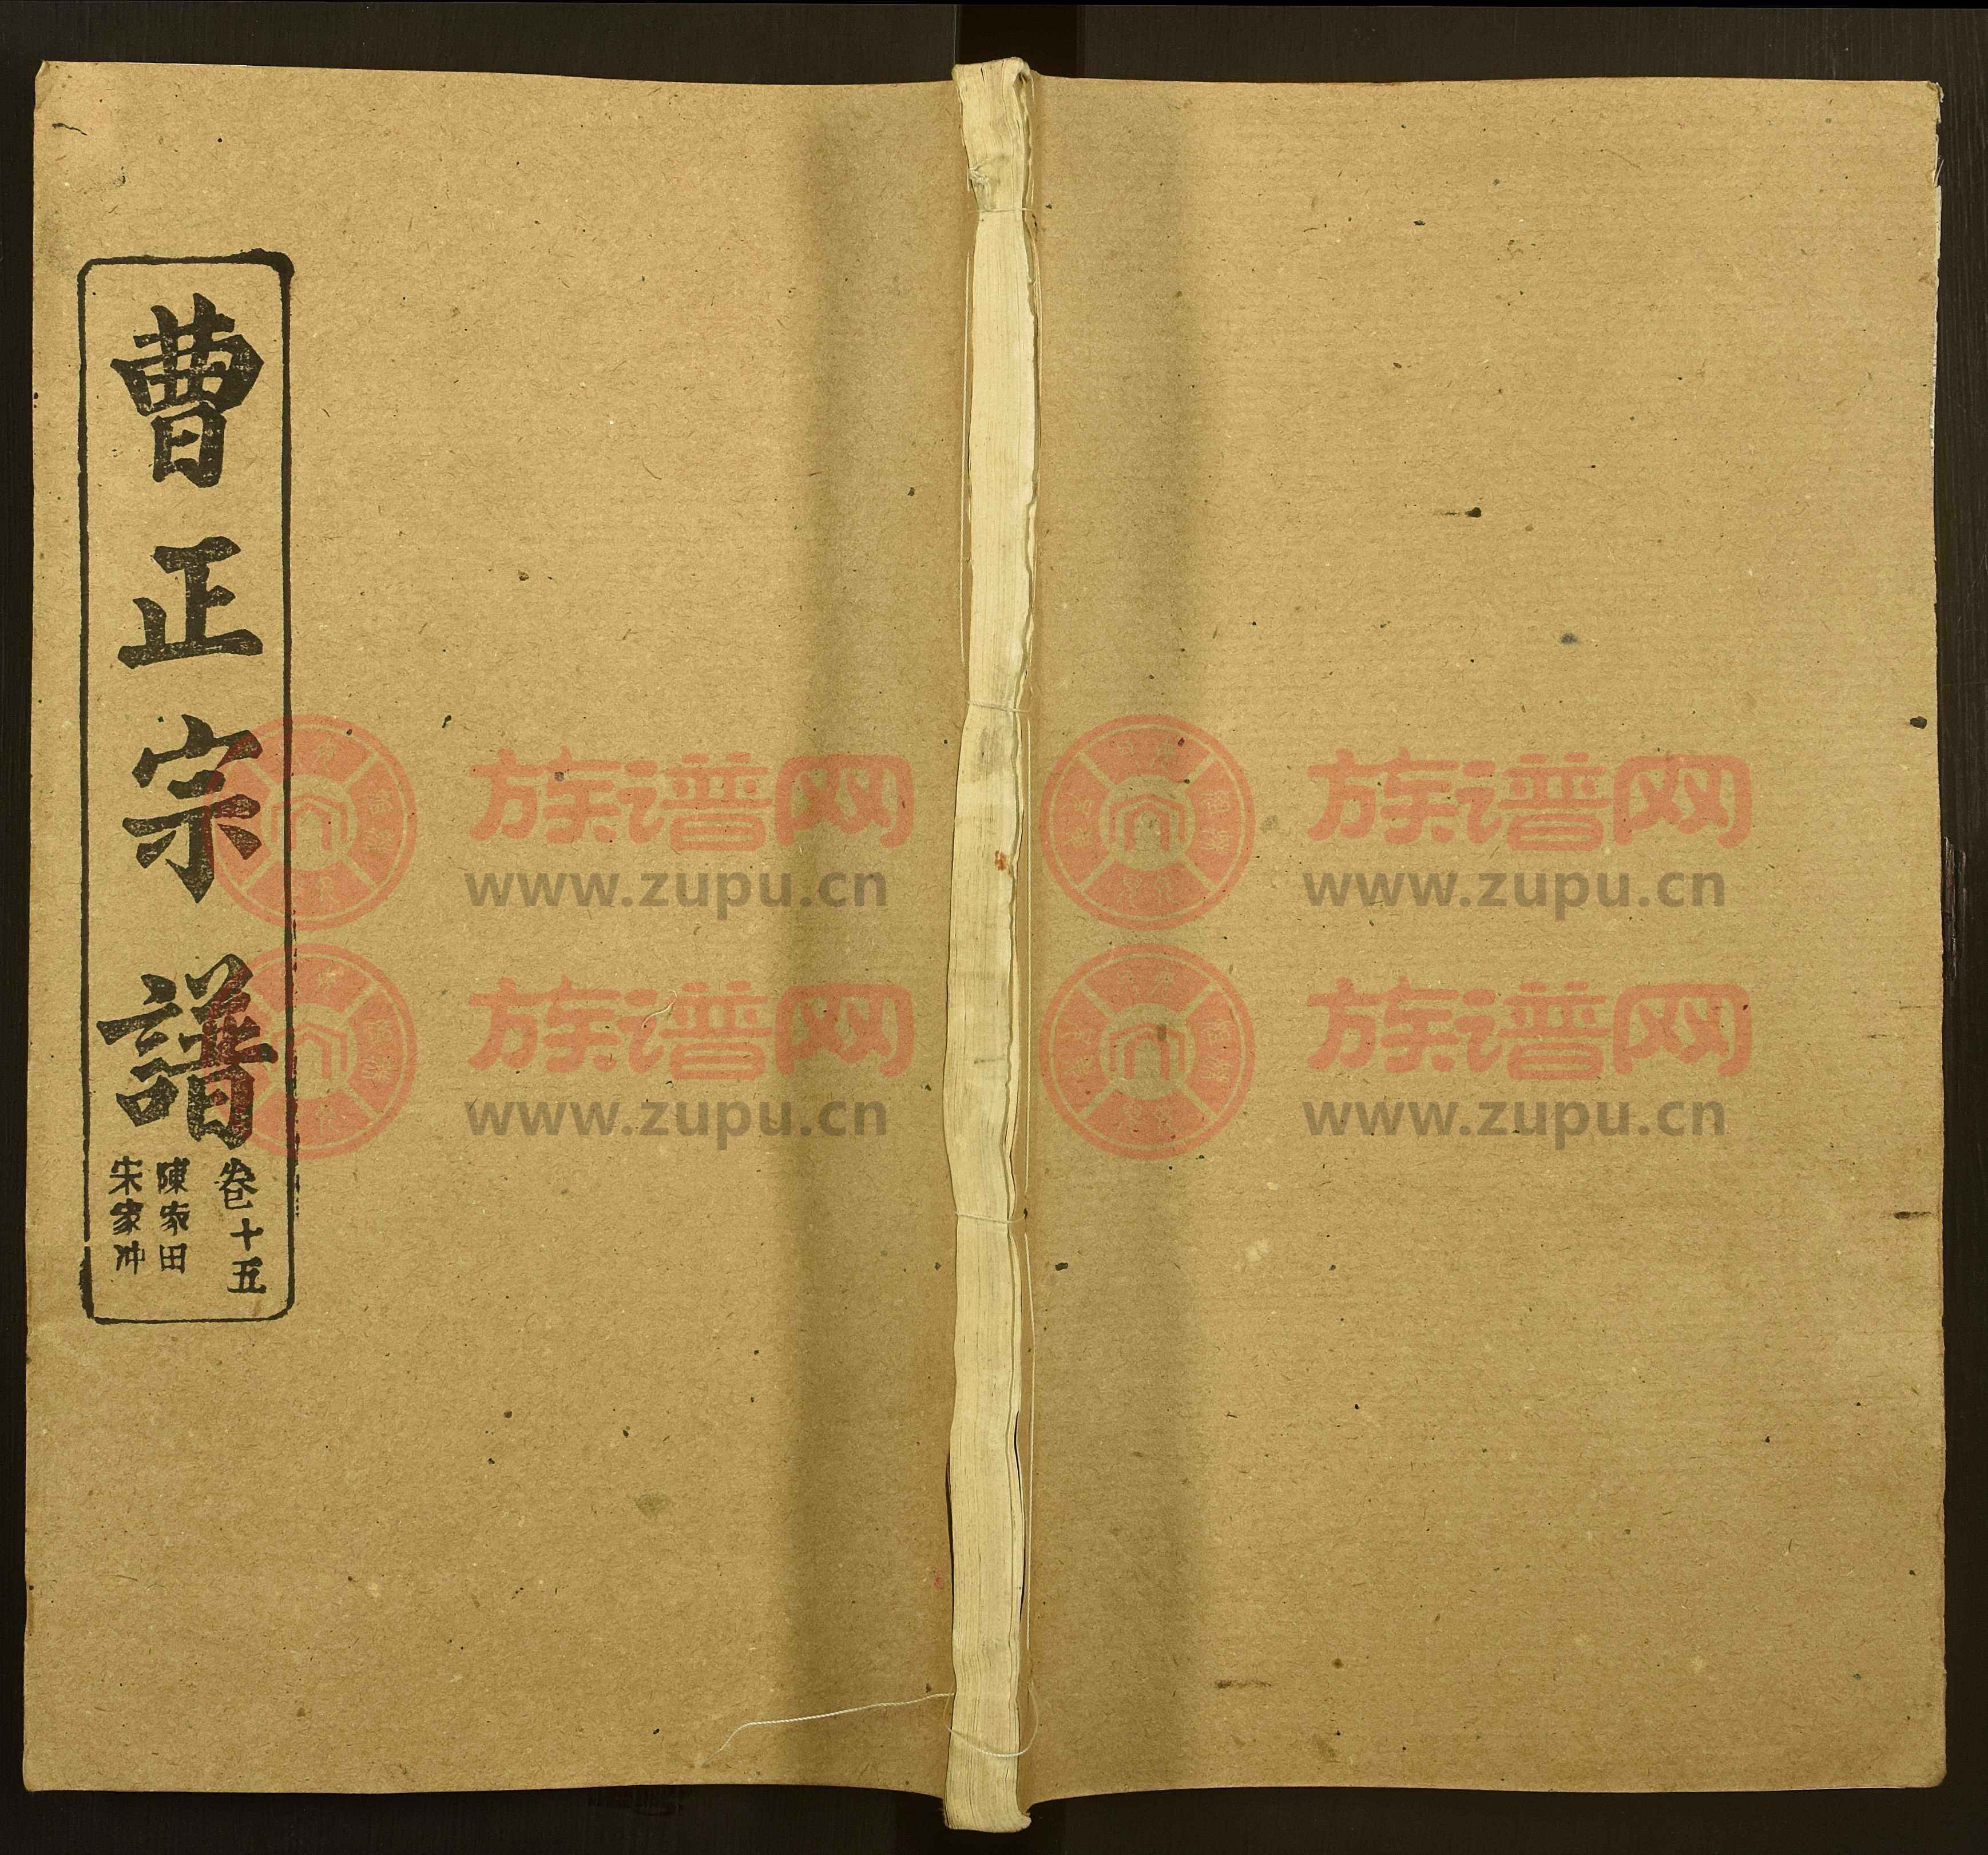 曹正宗譜
卷十五
陳家田
宋家冲
族谱网
www.zupu.cn
族谱网
www.zupu.cn
族谱网
www.zupu.cn
族谱网
www.zupu.cn